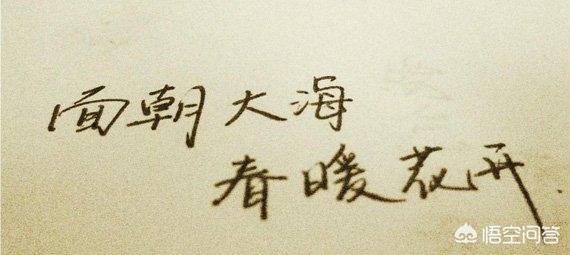 面朝大海
春暖花开.
悟空问答